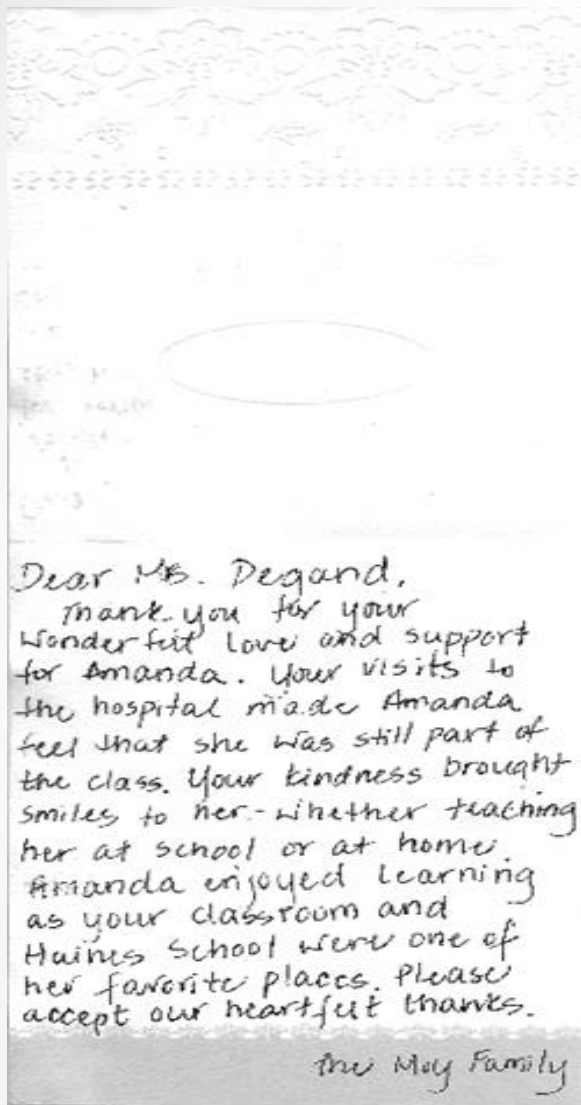 Dear Ms. Degand,
Thank you for your
wonderful love and support
for Amanda. Your visits to
the hospital made Amanda
feel that she was still part of
the class. Your kindness brought
smiles to her - whether teaching
her at school or at home.
Amanda enjoyed learning
as your classroom and
Haines School were one of
her favorite places. Please
accept our heartfelt thanks.
The Moy Family